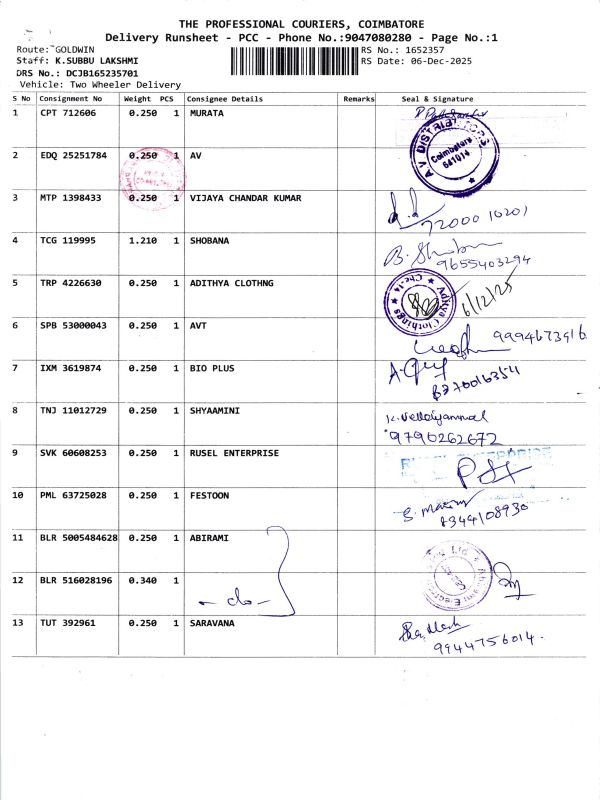 THE PROFESSIONAL COURIERS, COIMBATORE
Delivery Runsheet - PCC - Phone No.:9047080280 - Page No.:1
Route: GOLDWIN
RS No.: 1652357
Staff: K.SUBBU LAKSHMI
RS Date: 06-Dec-2025
DRS No.: DCJB165235701
Vehicle: Two Wheeler Delivery
S No Consignment No Weight PCS Consignee Details Remarks Seal & Signature
1 CPT 712606 0.250 1 MURATA
AV DISTRIBUTORS Coimbatore 641014
2 EDQ 25251784 0.250 1 AV
3 MTP 1398433 0.250 1 VIJAYA CHANDAR KUMAR
72000 10201
4 TCG 119995 1.210 1 SHOBANA
9655403294
5 TRP 4226630 0.250 1 ADITHYA CLOTHNG
Clothings 6/12/25
6 SPB 53000043 0.250 1 AVT
9994673916
7 IXM 3619874 0.250 1 BIO PLUS
8 TNJ 11012729 0.250 1 SHYAAMINI
9790262672
9 SVK 60608253 0.250 1 RUSEL ENTERPRISE
10 PML 63725028 0.250 1 FESTOON
8344108930
11 BLR 5005484628 0.250 1 ABIRAMI
12 BLR 516028196 0.340 1
- do -
13 TUT 392961 0.250 1 SARAVANA
9944756014.